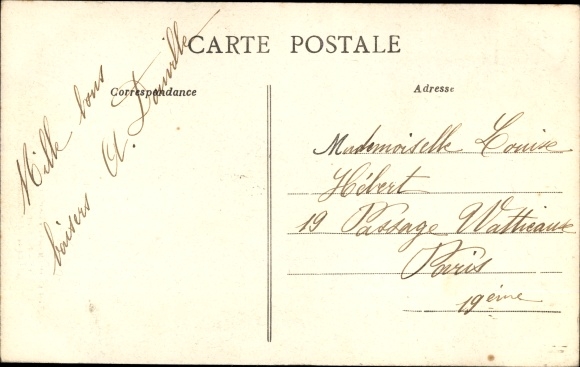 CARTE POSTALE
Correspondance
Mille bons
baisers A. Douville
Adresse
Mademoiselle Louise
Hébert
19 Passage Watticaux
Paris
19ème